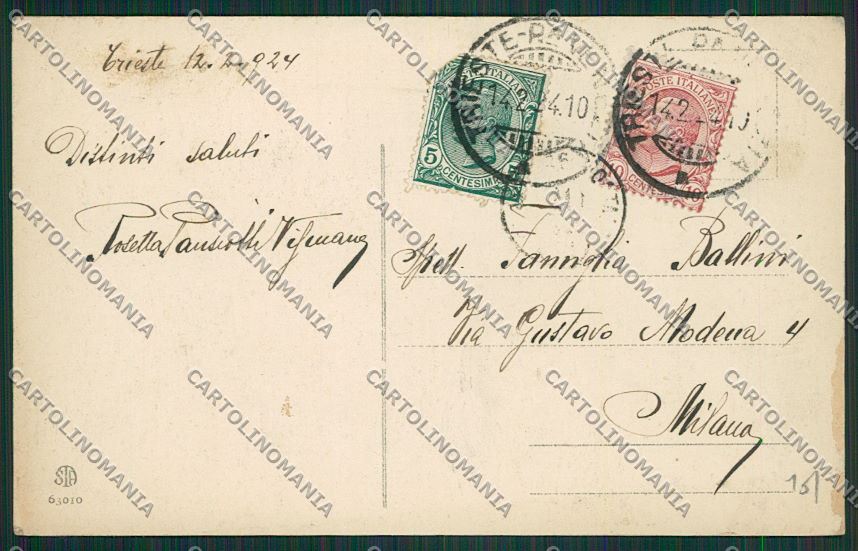 Trieste 12.2.924
Distinti saluti
Rosetta
Spett. Famiglia Ballini
Via Gustavo Modena 4
Milano
POSTE ITALIANE
5 5
CENTESIMI
POSTE ITALIANE
10 10
CENTESIMI
TRIESTE
14.2.24.10
TRIESTE
14.2.24.10
STA
63010
15
CARTOLINOMANIA